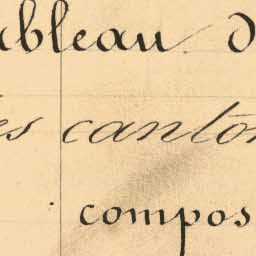 ableau d
es canton
compos